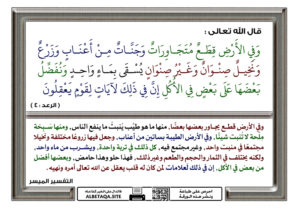 قال الله تعالى :
وَفِي الْأَرْضِ قِطَعٌ مُتَجَاوِرَاتٌ وَجَنَّاتٌ مِنْ أَعْنَابٍ وَزَرْعٌ
وَنَخِيلٌ صِنْوَانٌ وَغَيْرُ صِنْوَانٍ يُسْقَى بِمَاءٍ وَاحِدٍ وَنُفَضِّلُ
بَعْضَهَا عَلَى بَعْضٍ فِي الْأُكُلِ إِنَّ فِي ذَلِكَ لَآيَاتٍ لِقَوْمٍ يَعْقِلُونَ
( الرعد : ٤ )
وفي الأرض قطع يجاور بعضها بعضا، منها ما هو طيب ينبت ما ينفع الناس, ومنها سبخة
ملحة لا تنبت شيئا, وفي الأرض الطيبة بساتين من أعناب, وجعل فيها زروعا مختلفة ونخيلا
مجتمعا في منبت واحد, وغير مجتمع فيه, كل ذلك في تربة واحدة, ويشرب من ماء واحد,
ولكنه يختلف في الثمار والحجم والطعم وغير ذلك, فهذا حلو وهذا حامض, وبعضها أفضل
من بعض في الأكل, إن في ذلك لعلامات لمن كان له قلب يعقل عن الله تعالى أمره ونهيه.
التفسير الميسر
ALBETAQA.SITE
احرص على طباعة
ونشر هذه الورقة